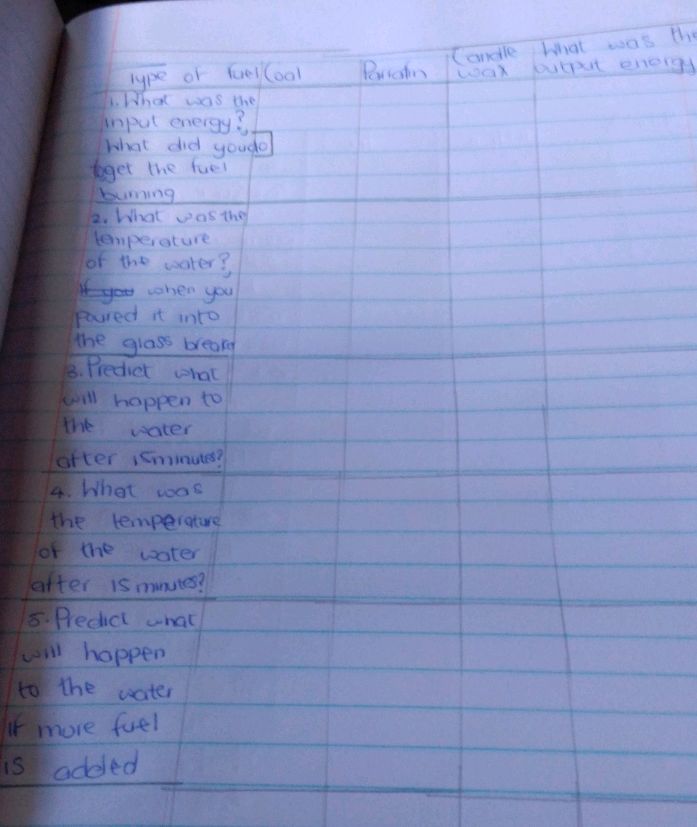 Type of fuel Coal Paraffin Candle wax What was the output energy
1. What was the
input energy?
What did you do
to get the fuel
burning
2. What was the
temperature
of the water?
If you when you
poured it into
the glass breaker
3. Predict what
will happen to
the water
after 15 minutes?
4. What was
the temperature
of the water
after 15 minutes?
5. Predict what
will happen
to the water
if more fuel
is added